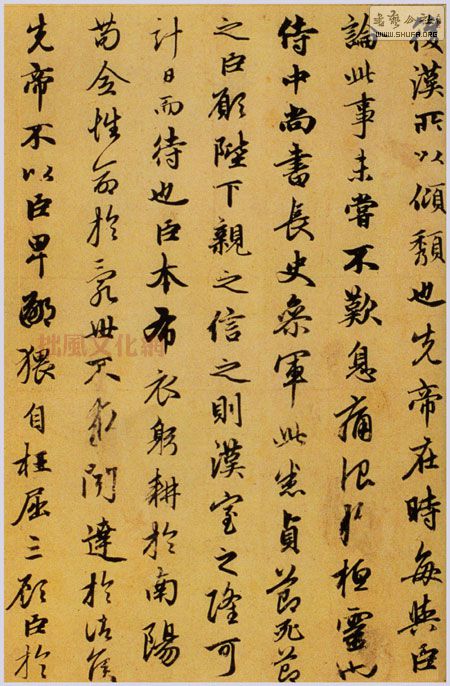 後漢所以傾頹也先帝在時每與臣
論此事未嘗不歎息痛恨於桓靈也
侍中尚書長史參軍此悉貞節死節
之臣願陛下親之信之則漢室之隆可
計日而待也臣本布衣躬耕於南陽
苟全性命於亂世不求聞達於諸侯
先帝不以臣卑鄙猥自枉屈三顧臣於
書藝公社
WWW.SHUFA.ORG
拙風文化網